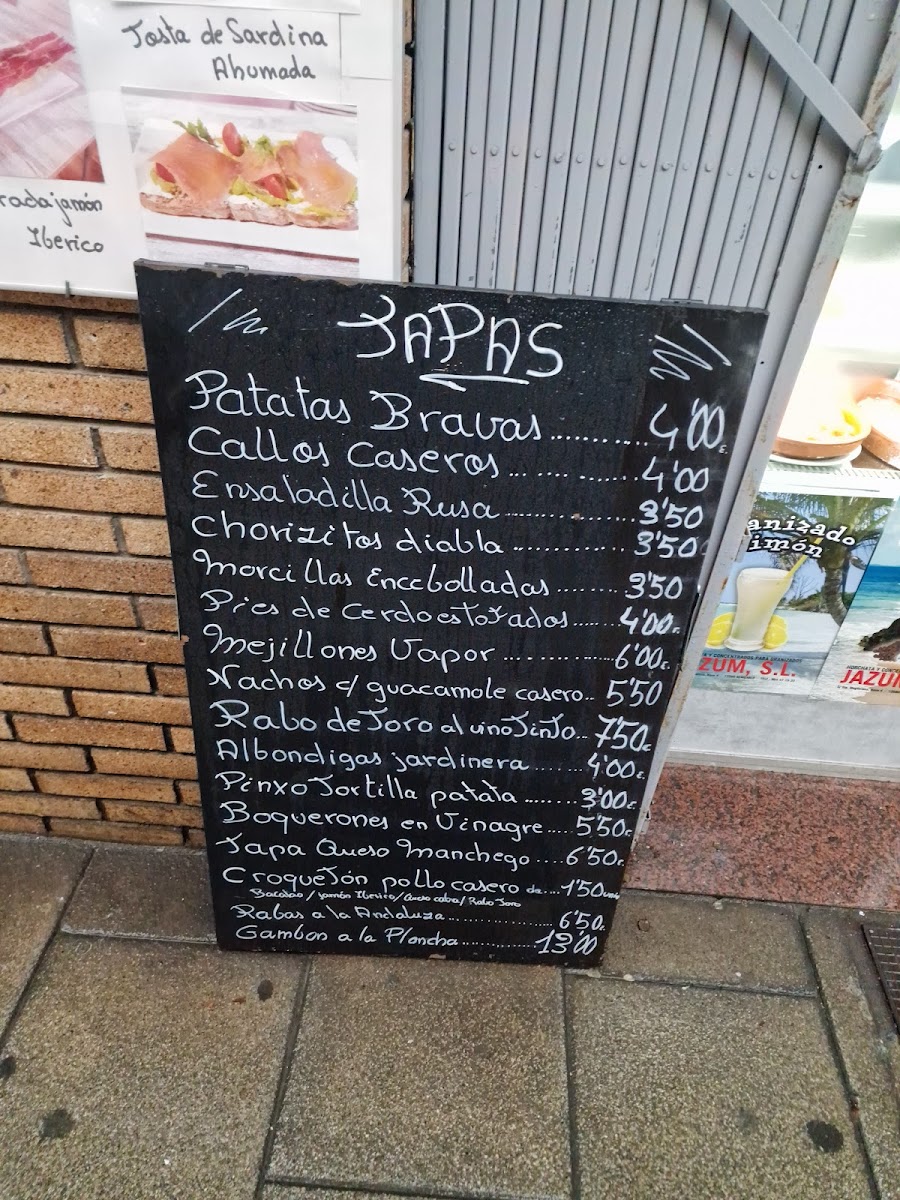 Tosta de Sardina
Ahumada
radajamón
Iberico
TAPAS
Patatas Bravas.............4'00€
Callos Caseros.............4'00
Ensaladilla Rusa.............3'50
Chorizitos diabla.............3'50
Morcillas Encebolladas........3'50
Pies de Cerdo estofados.....4'00€
Mejillones Vapor.............6'00€
Nachos c/ guacamole casero..5'50
Rabo de Toro al vino Tinto...7'50€
Albondigas jardinera.......4'00€
Pinxo Tortilla patata........3'00€
Boquerones en Vinagre....5'50€
Tapa Queso Manchego....6'50€
Croquetón pollo casero de....1'50 uni
Bacalao / jamón Iberico / Queso cabra / Rabo Toro
Rabas a la Andaluza.............6'50€
Gambon a la Plancha...........13'00
anizado
imón
ZUM, S.L.
JAZUM